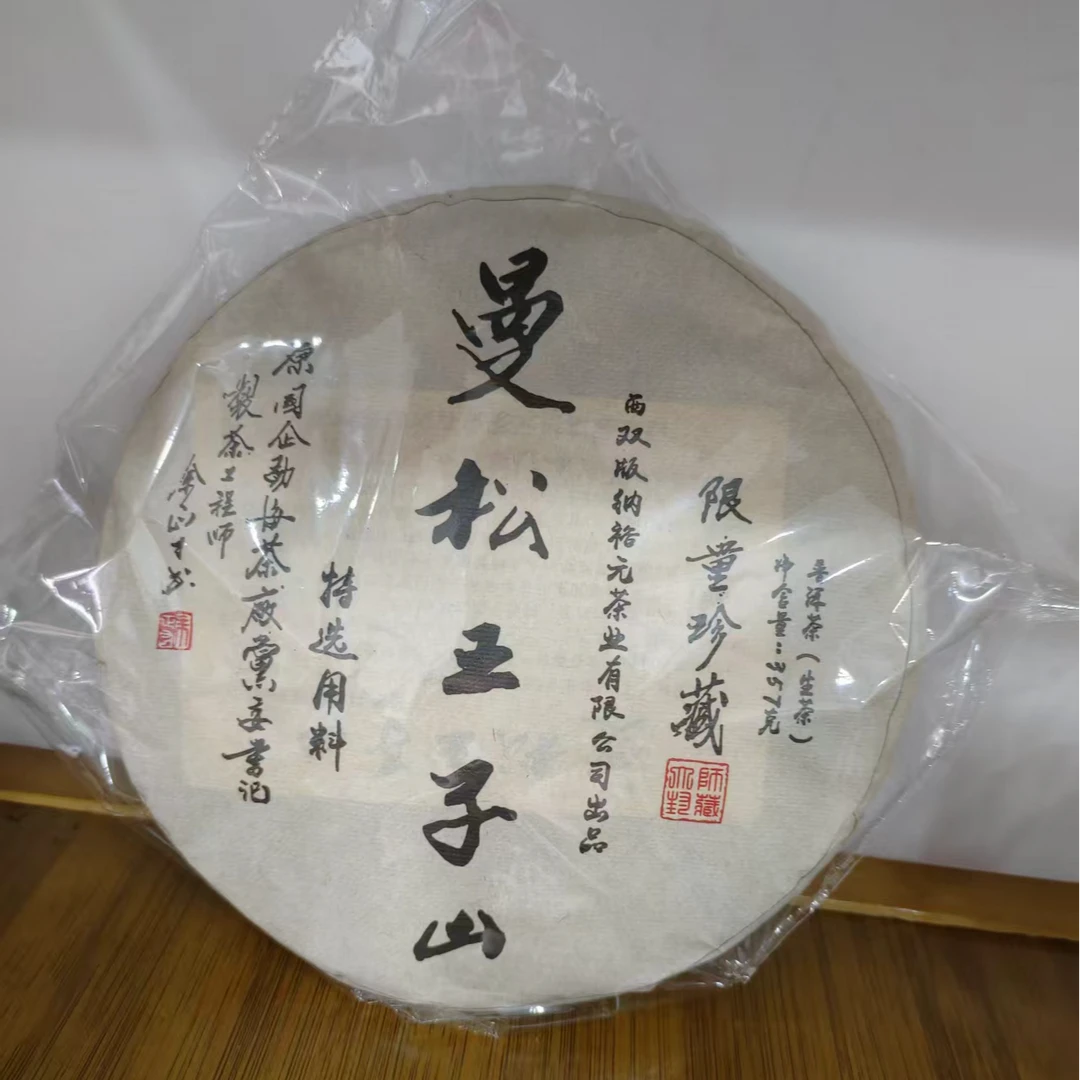 普洱茶(生茶)
净含量:357克
限量珍藏
师藏
西双版纳裕元茶业有限公司出品
曼松王子山
特选用料
原国企勐海茶廠黨委書记
製茶工程师